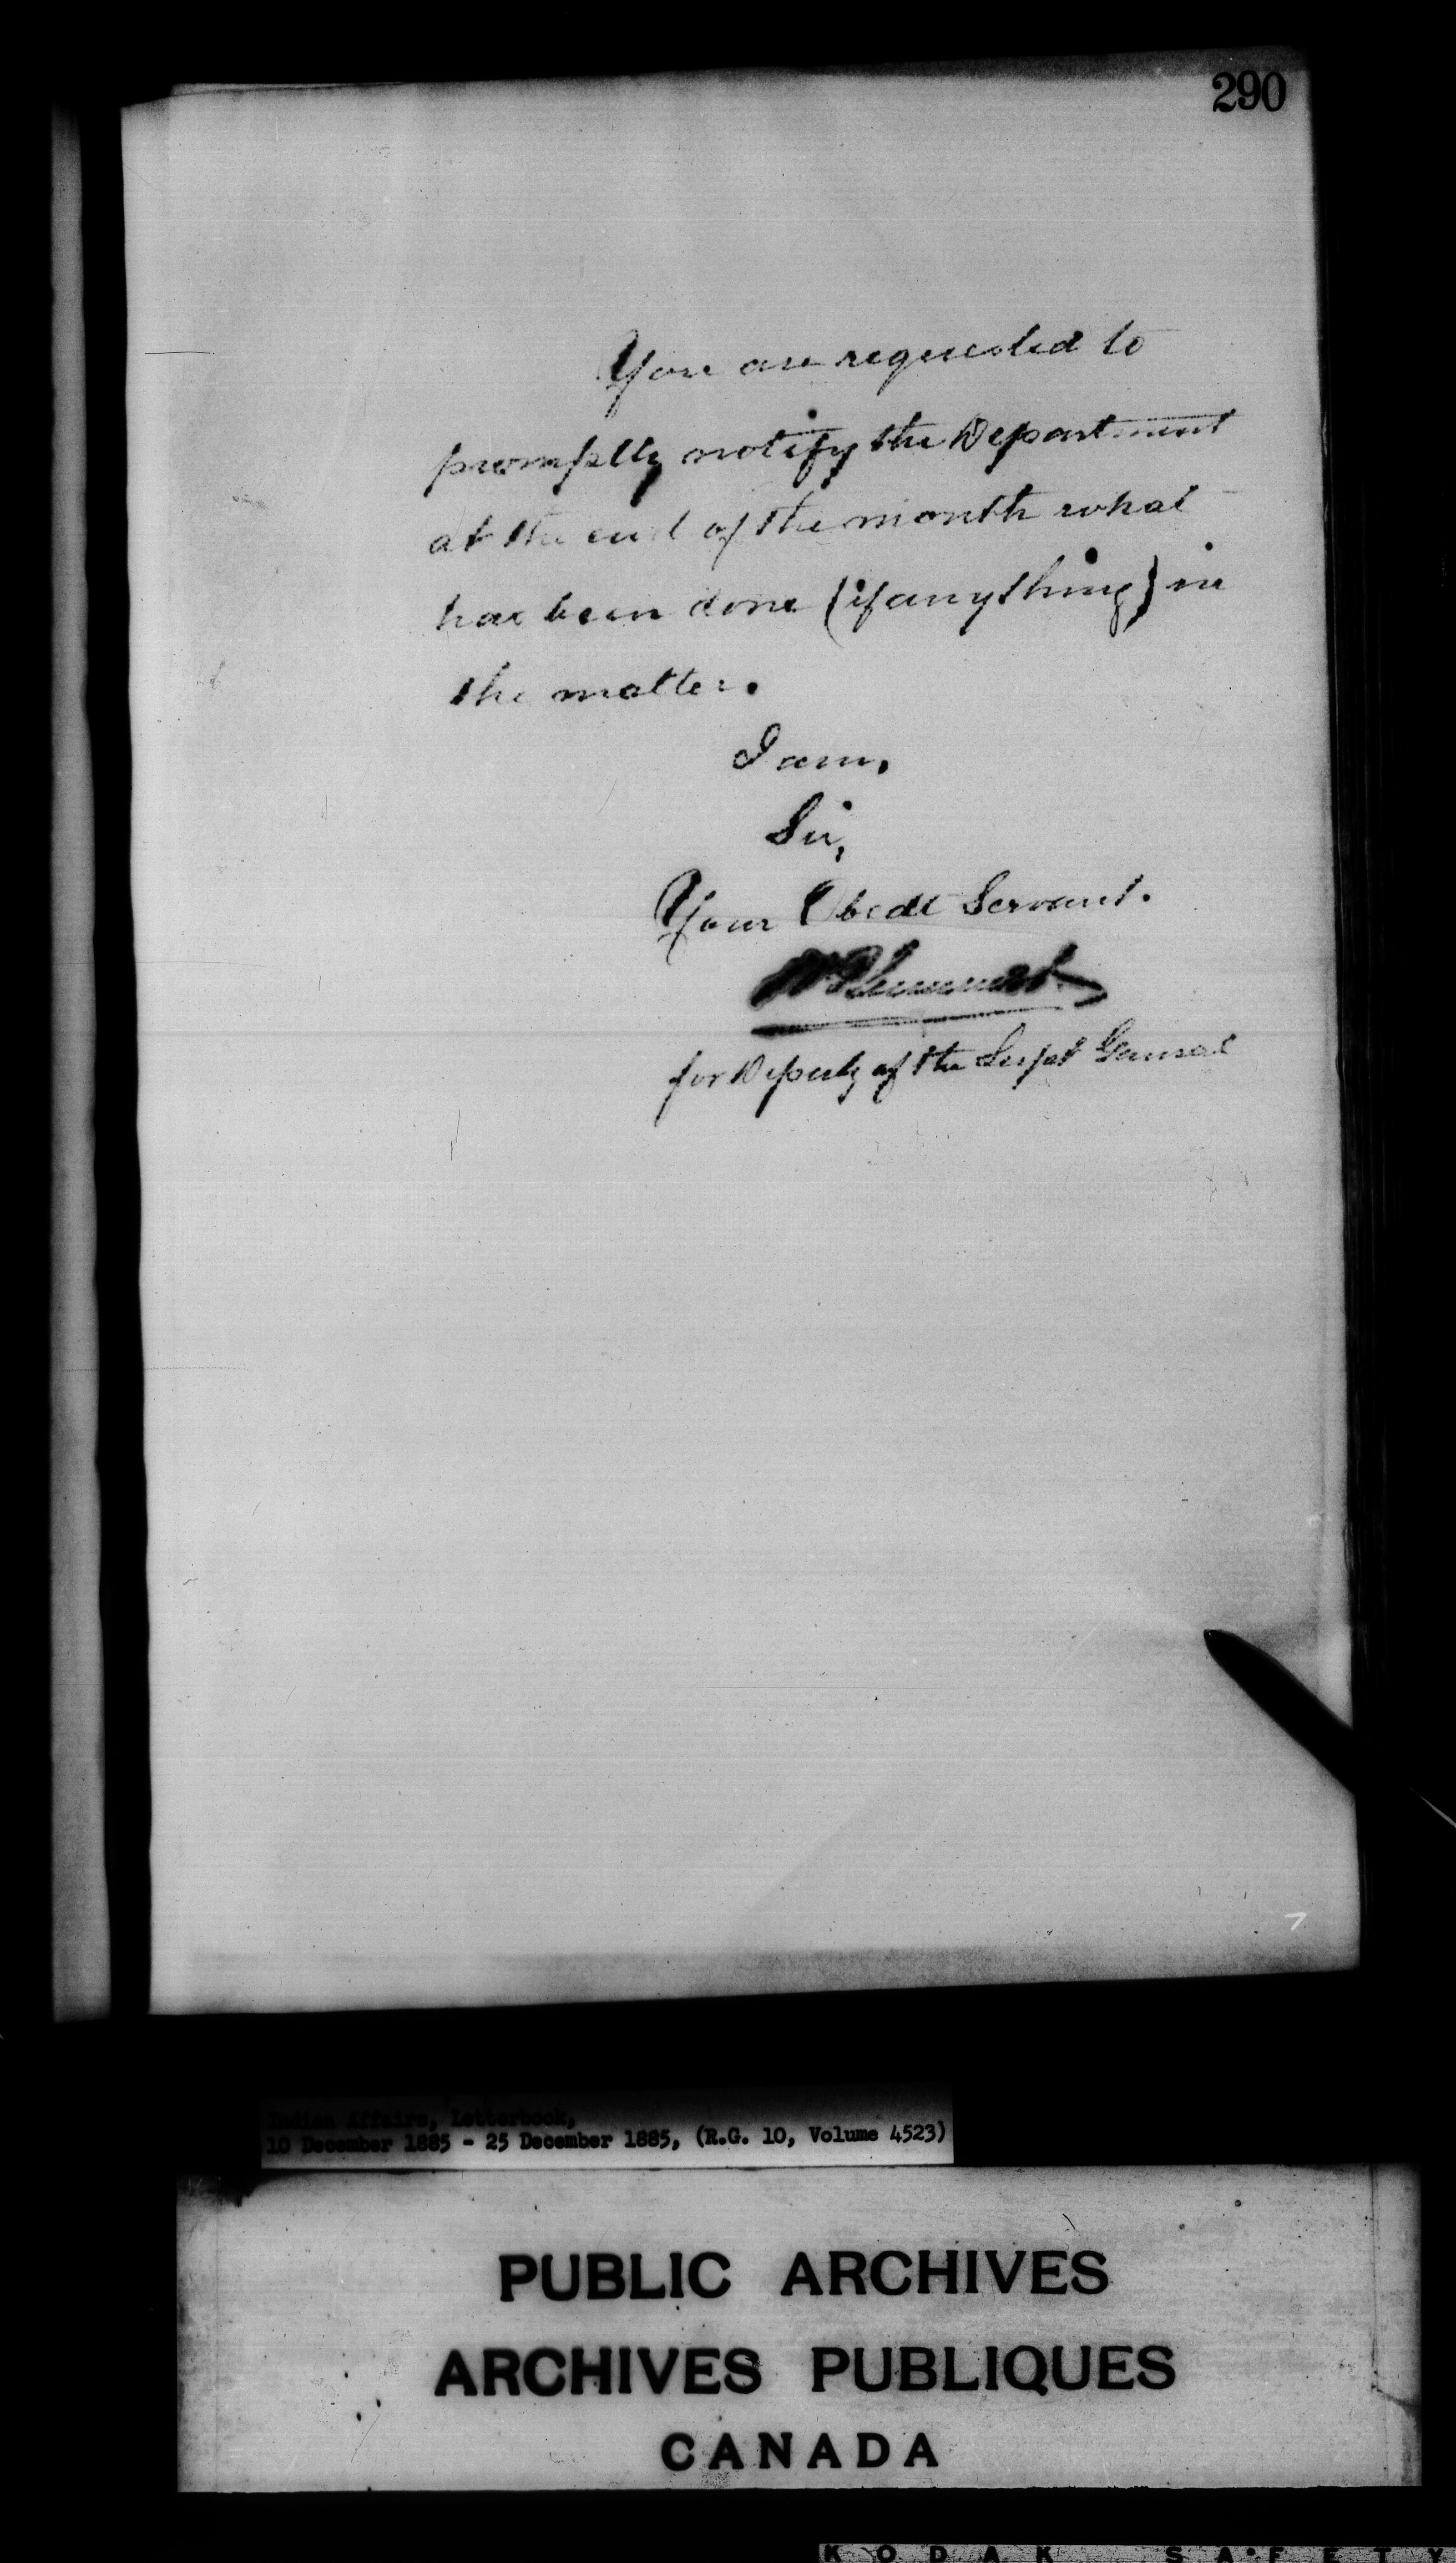 290
You are requested to
promptly notify the Department
at the end of the month what
has been done (if anything) in
the matter.
I am,
Sir,
Your Obedt Servant.
for Deputy of the Supt General
Indian Affairs, Letterbook,
10 December 1885 - 25 December 1885, (R.G. 10, Volume 4523)
PUBLIC ARCHIVES
ARCHIVES PUBLIQUES
CANADA
KODAK SAFETY